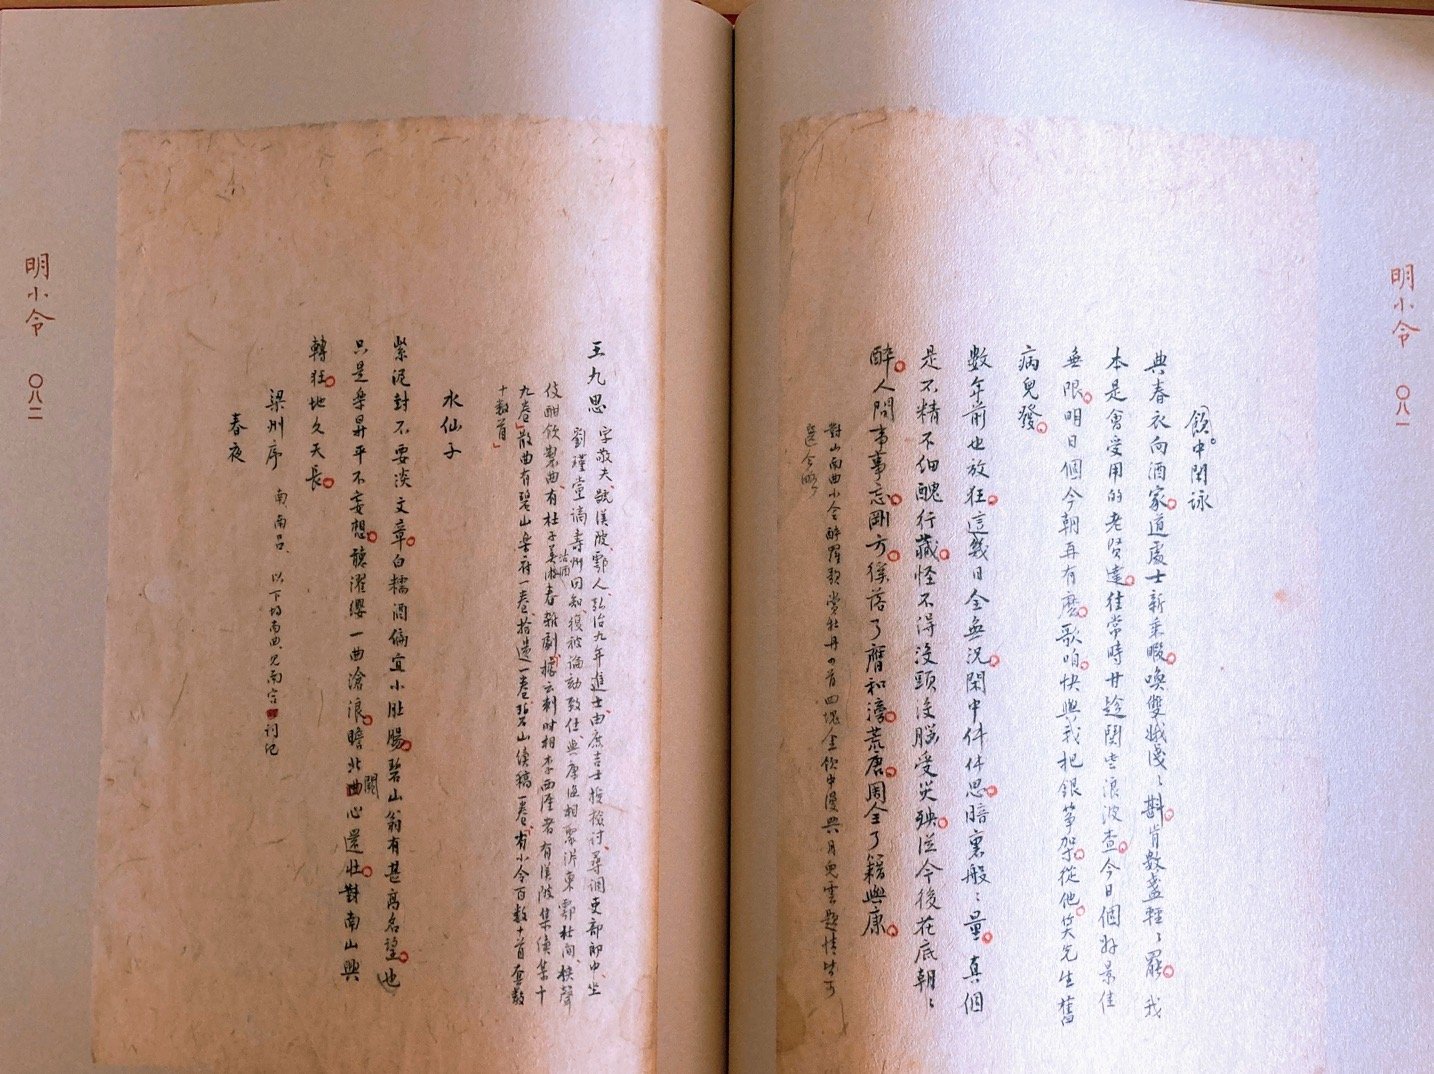 明小令 〇八一
飲中閑詠
典春衣向酒家道處士新來暇喚雙娥淺、斟肯數盞輕、罷我
本是會受用的老賢達往常時廿趁閑雲浪波查今日個好景佳
無限明日個今朝再有麽歌咱快與我把銀箏架從他笑先生舊
病兒發
數年前也放狂這幾日全無況閑中件件思暗裏般、量真個
是不精不細醜行藏怪不得没頭没腦受災殃從今後花底朝、
醉人間事事忘剛方徯落了膺和滂荒唐周全了籍與康
對山南曲小令醉羅歌賞牡丹四首四塊金飲中漫興月兒雲題情皆可
選今略
明小令 〇八二
王九思 字敬夫號渼陂鄠人弘治九年進士由庶吉士授檢討尋調吏部郎中坐
劉瑾黨謫壽州同知復被論勒致仕與康海相聚沜東鄠杜間挾聲
伎酣飲製曲有杜子美沽酒游春雜劇據云刺時相李西涯者有渼陂集續集十
九卷散曲有碧山樂府一卷拾遺一卷碧山續稿一卷「有小令百數十首套數
十數首」
水仙子
紫泥封不要淡文章白糯酒偏宜小肚腸碧山翁有甚高名望也
只是樂昇平不妄想聽濯纓一曲滄浪瞻北闕心還壯對南山興
轉狂地久天長
梁州序 南南吕、以下均南曲見南宫詞紀
春夜